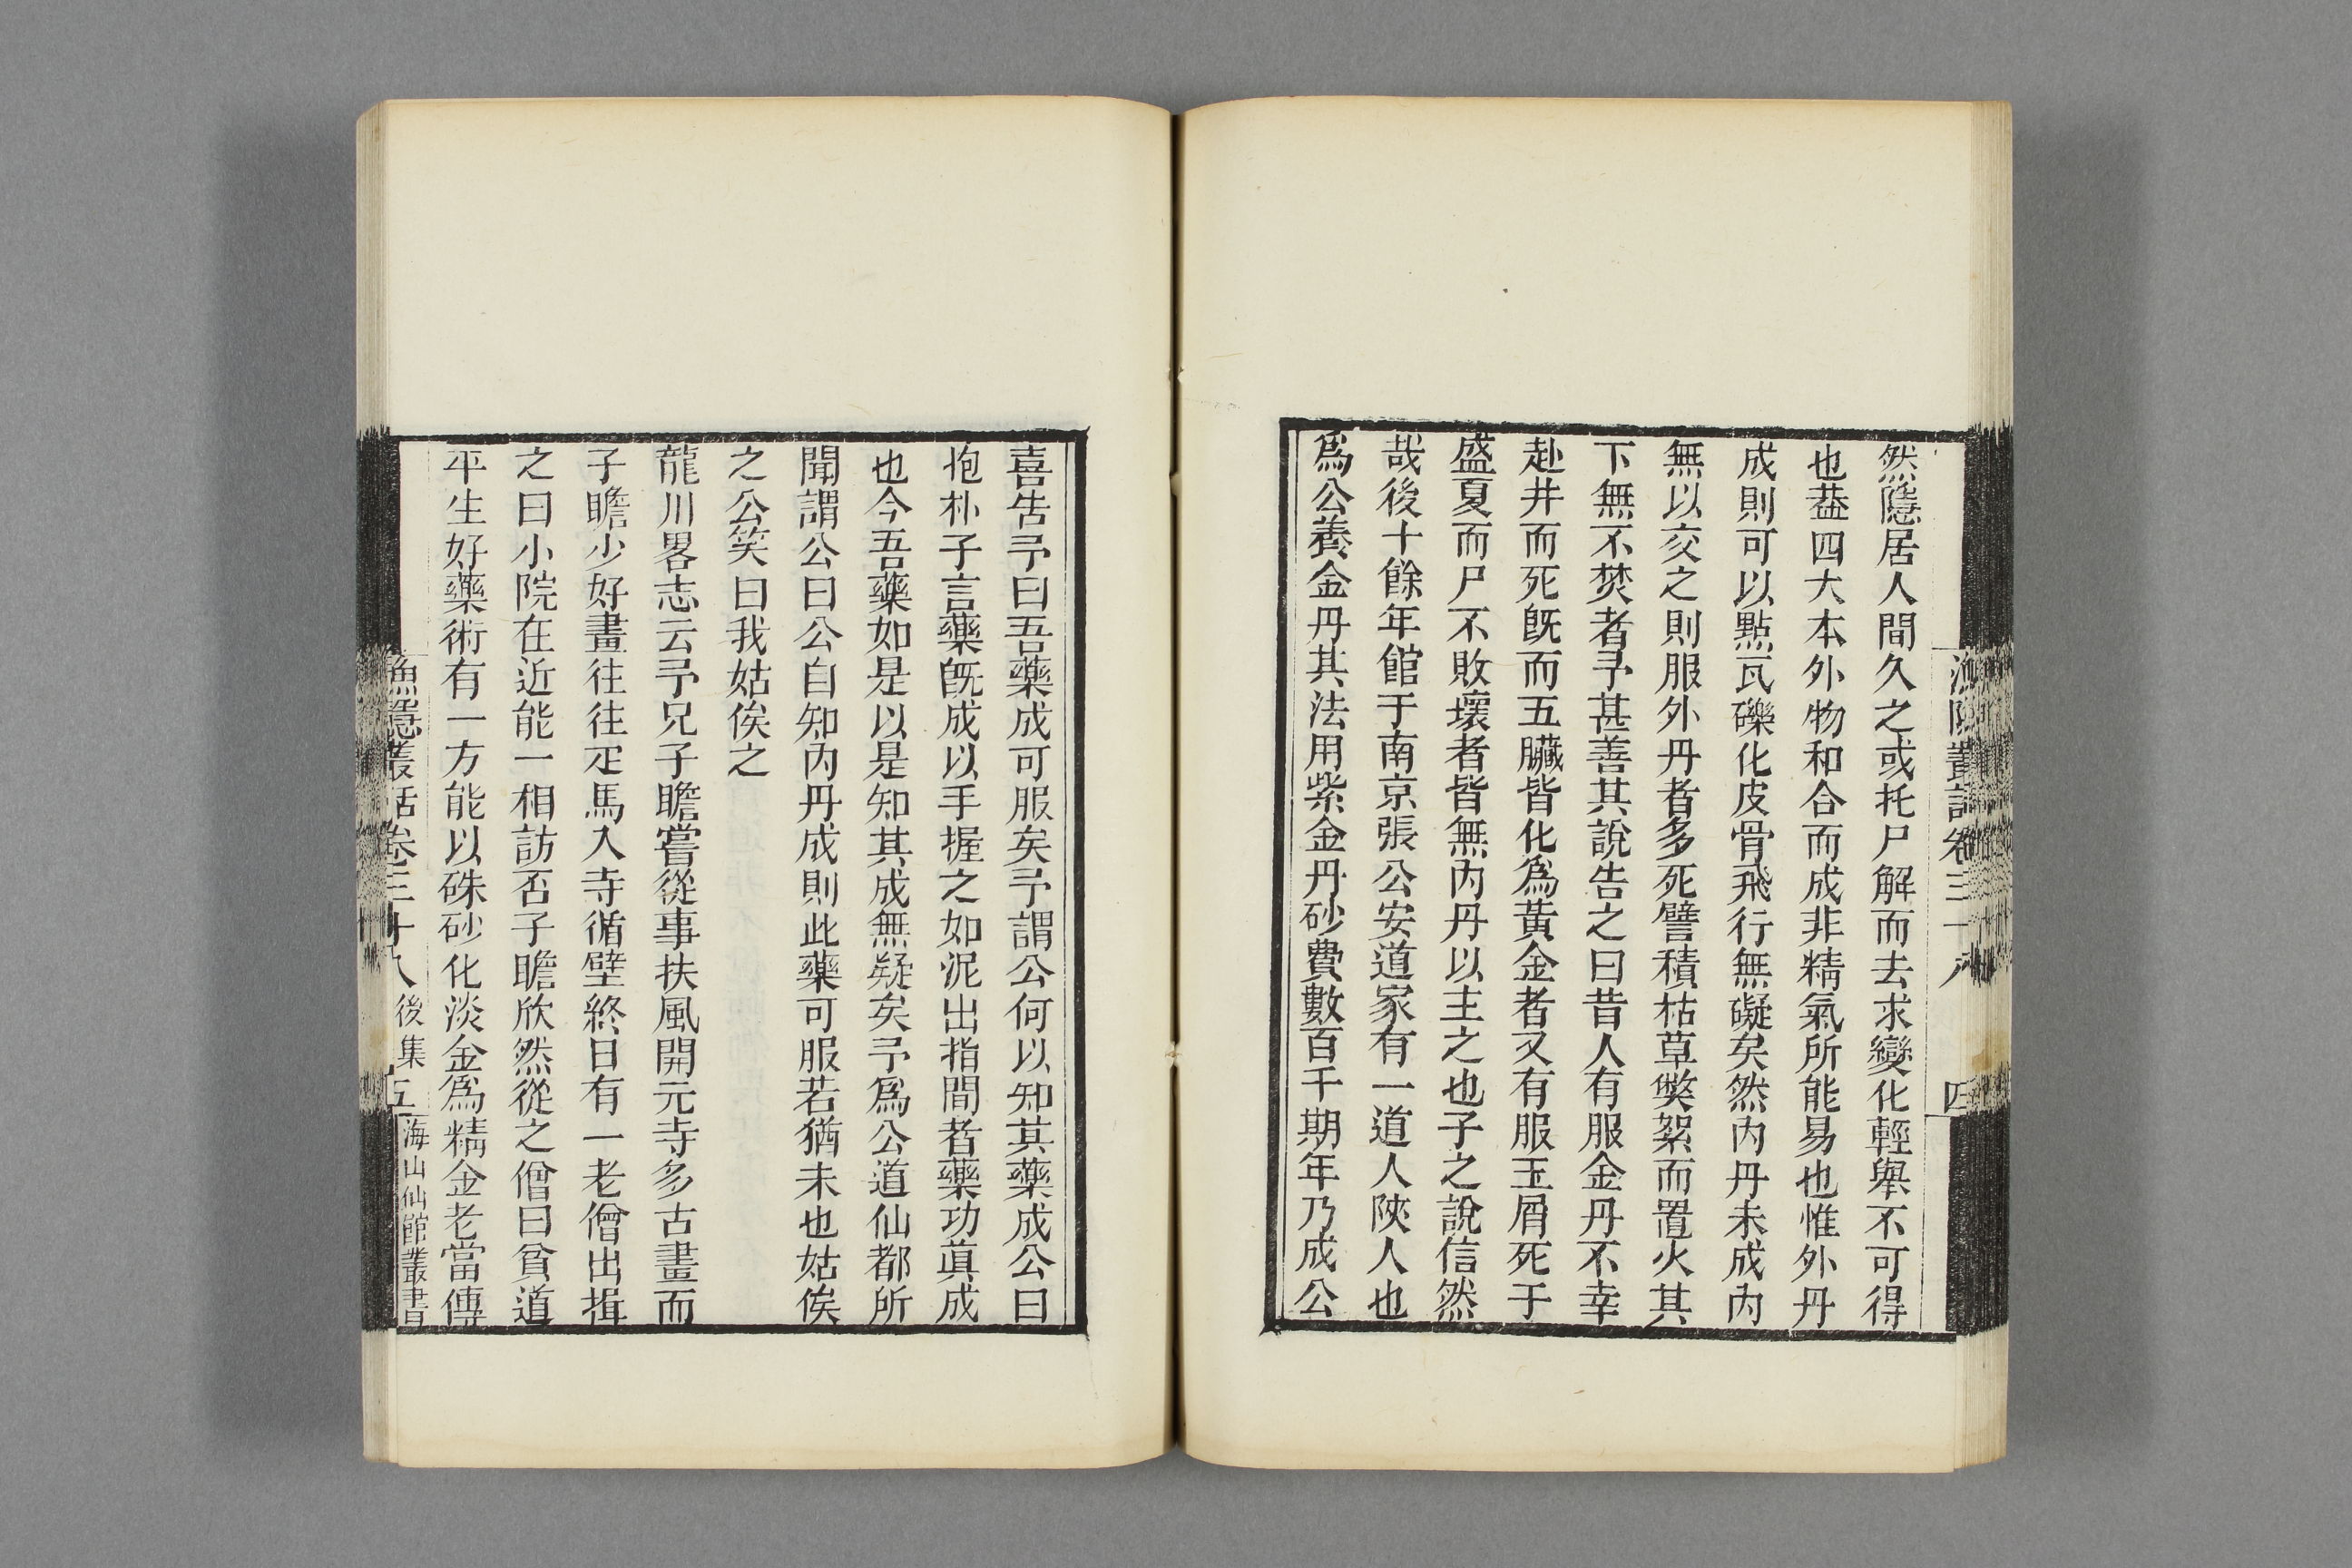 漁隱叢話卷三十八
四
然隱居人間久之或托尸解而去求變化輕舉不可得
也葢四大本外物和合而成非精氣所能易也惟外丹
成則可以點瓦礫化皮骨飛行無礙矣然內丹未成內
無以交之則服外丹者多死譬積枯草獘絮而置火其
下無不焚者予甚善其說告之曰昔人有服金丹不幸
赴井而死旣而五臟皆化爲黃金者又有服玉屑死于
盛夏而尸不敗壞者皆無內丹以主之也子之說信然
哉後十餘年館于南京張公安道家有一道人陝人也
爲公養金丹其法用紫金丹砂費數百千期年乃成公
喜告予曰吾藥成可服矣予謂公何以知其藥成公曰
抱朴子言藥旣成以手握之如泥出指間者藥功眞成
也今吾藥如是以是知其成無疑矣予爲公道仙都所
聞謂公曰公自知內丹成則此藥可服若猶未也姑俟
之公笑曰我姑俟之
龍川畧志云予兄子瞻嘗從事扶風開元寺多古畫而
子瞻少好畫往往疋馬入寺循壁終日有一老僧出揖
之曰小院在近能一相訪否子瞻欣然從之僧曰貧道
平生好藥術有一方能以硃砂化淡金爲精金老當傳
漁隱叢話卷三十八 後集 五
海山仙館叢書